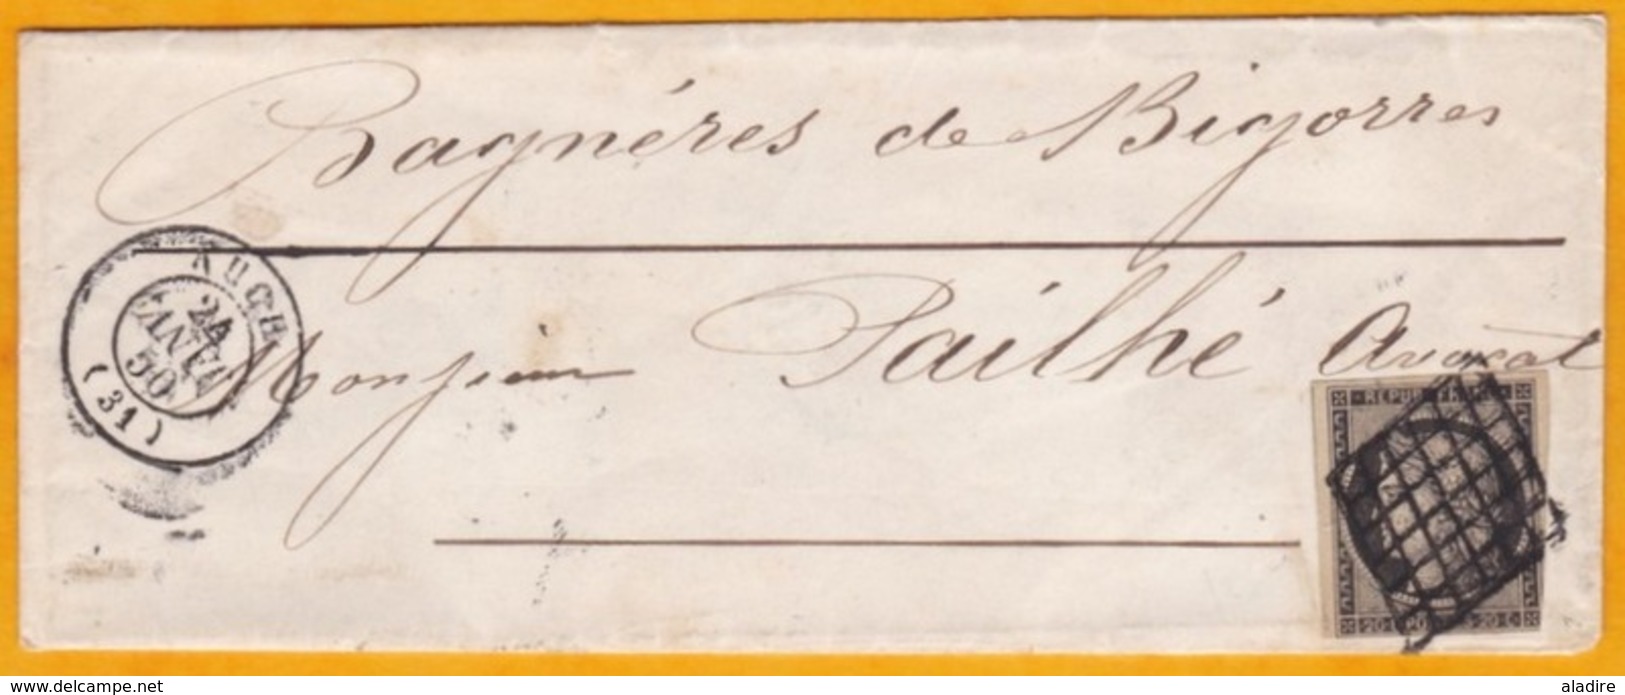 Bagnéres de Bigorres
AUCH
24
JANV.
50
(31)
Monsieur Pailhé Avocat
REPUB FRANC
20 c 20 c 20 c
www.delcampe.net
aladire